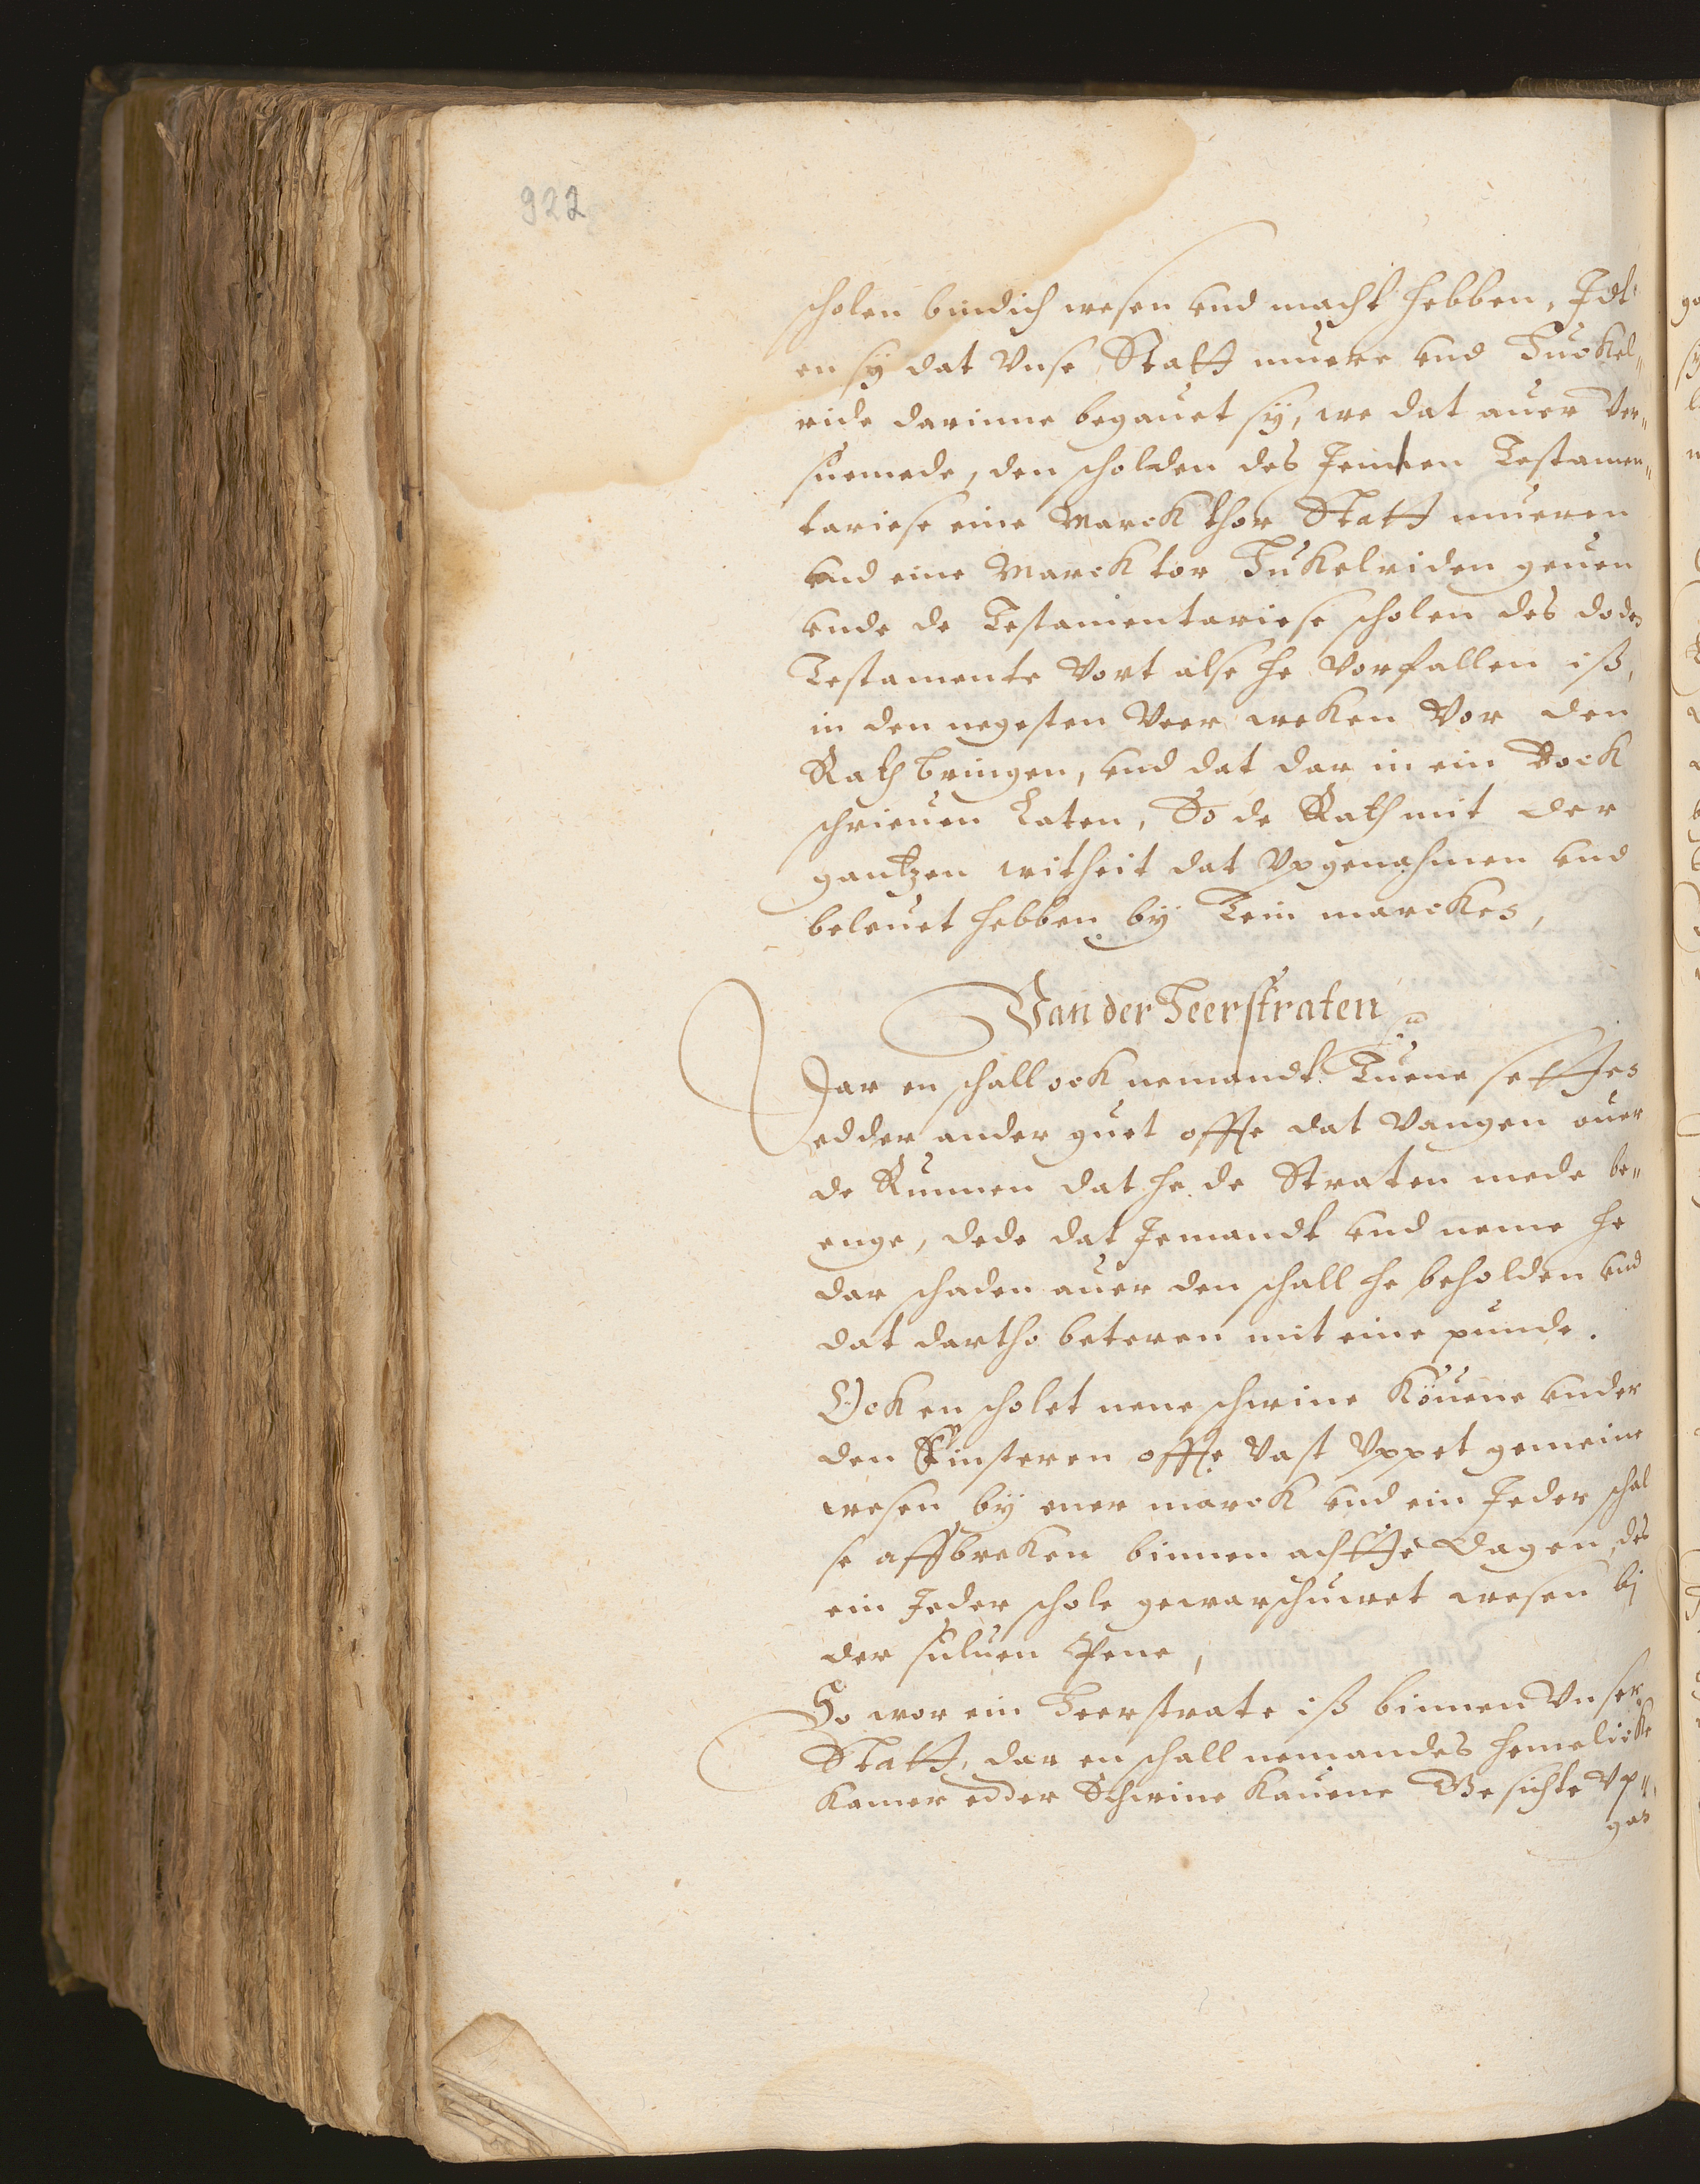 922
scholen bindich wesen vnd macht hebben, Idt
en sÿ dat vnse Statt muere vnd Tuckel„
ride darinne begauet sÿ, we dat auer Ver„
suemede, den scholden des Jennen Testamen„
tariese eine Marck thor Statt mueren
vnd eine Marck tor Tukelriden geuen
vnde de Testamentariese scholen des doden
Testamente Vort alse he Vorfallen iß,
in den negesten Veer weken Vor den
Rath bringen, vnd dat dar in ein Bock
schrieuen Laten, So de Rath mit der
gantzen witheit dat Vpgenahmen vnd
beleuet hebben bÿ Tein marckes,
Van der Heerstraten
Dar en schall ock nemandt Tuene setten
edder ander guet offte dat Vangen ouer
de Runnen dat he de Straten mede be„
enge, dede dat Jemandt vnd neme he
dar schaden auer den schall he beholden vnd
dat dartho beteren mit eine punde.
Ock en scholet nene schwine Köuene vnder
den Finsteren offte Vast Vppet gemeine
wesen bÿ ener marck vnd ein Jeder schal
se affbreken binnen achtte Dagen, des
ein Jeder schole gewarschuwet wesen bÿ
der suluen Pene,
So wor ein Heerstrate iß binnen Vnser
Statt, dar en schall nemandes hemelicke
Kamer edder Schwine Kauene Gesichte Vp„
gan